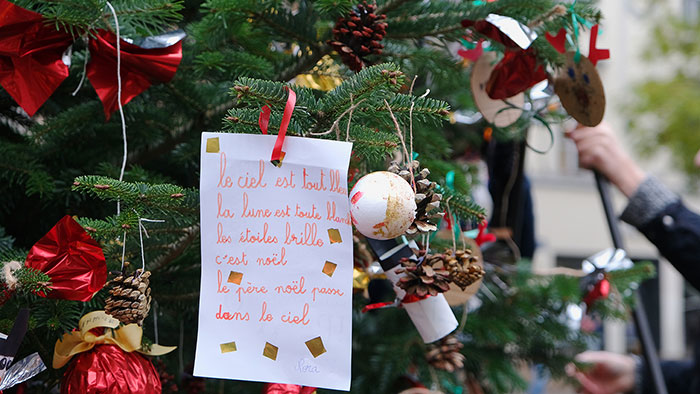 le ciel est tout
la lune est toute
les étoiles brille
c'est noël
le père noël passe
dans le ciel